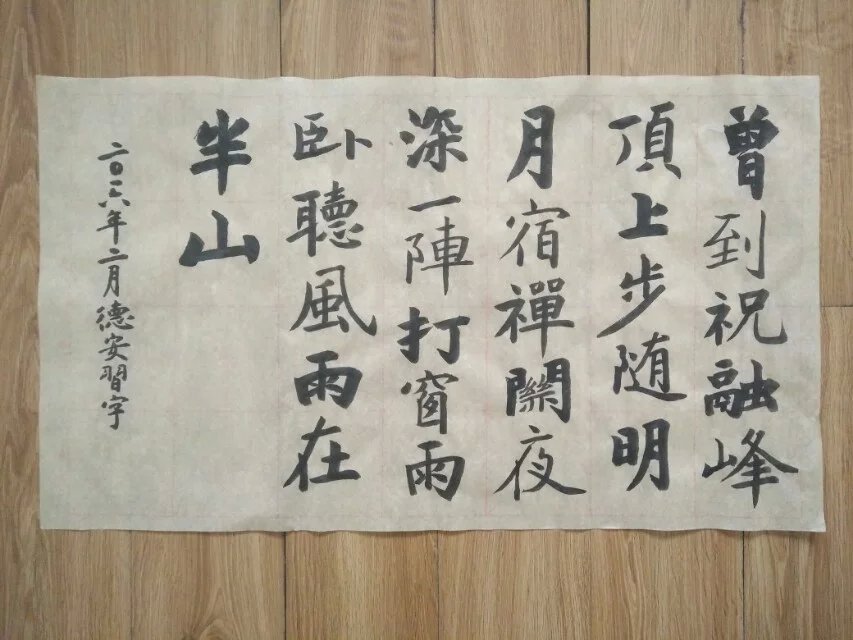 曾到祝融峰
頂上步随明
月宿禪關夜
深一陣打窗雨
卧聽風雨在
半山
二〇一六年二月德安習字